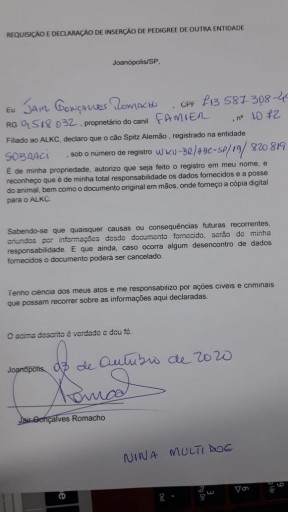 REQUISIÇÃO E DECLARAÇÃO DE INSERÇÃO DE PEDIGREE DE OUTRA ENTIDADE
Joanópolis/SP,
Eu JAIR GONÇALVES ROMACHO , CPF 213 587-308-
RG 9518032 , proprietário do canil FAMIER , nº 1012
Filado ao ALKC, declaro que o cão Spitz Alemão , registrado na entidade
SOBRACI , sob o número de registro WKU-BR/ABC-SP/19/ 820819
É de minha propriedade, autorizo que seja feito o registro em meu nome, e
reconheço que é de minha total responsabilidade os dados fornecidos e a posse
do animal, bem como o documento original em mãos, onde forneço a cópia digital
para o ALKC.
Sabendo-se que quaisquer causas ou consequências futuras recorrentes,
oriundos por informações desde documento fornecido, serão de minha
responsabilidade. E que ainda, caso ocorra algum desencontro de dados
fornecidos o documento poderá ser cancelado.
Tenho ciência dos meus atos e me responsabilizo por ações civeis e criminais
que possam recorrer sobre as informações aqui declaradas.
O acima descrito é verdade e dou fé.
Joanópolis, 03 de Outubro de 2020
Romacho
Jair Gonçalves Romacho
NINA MULTIDOG